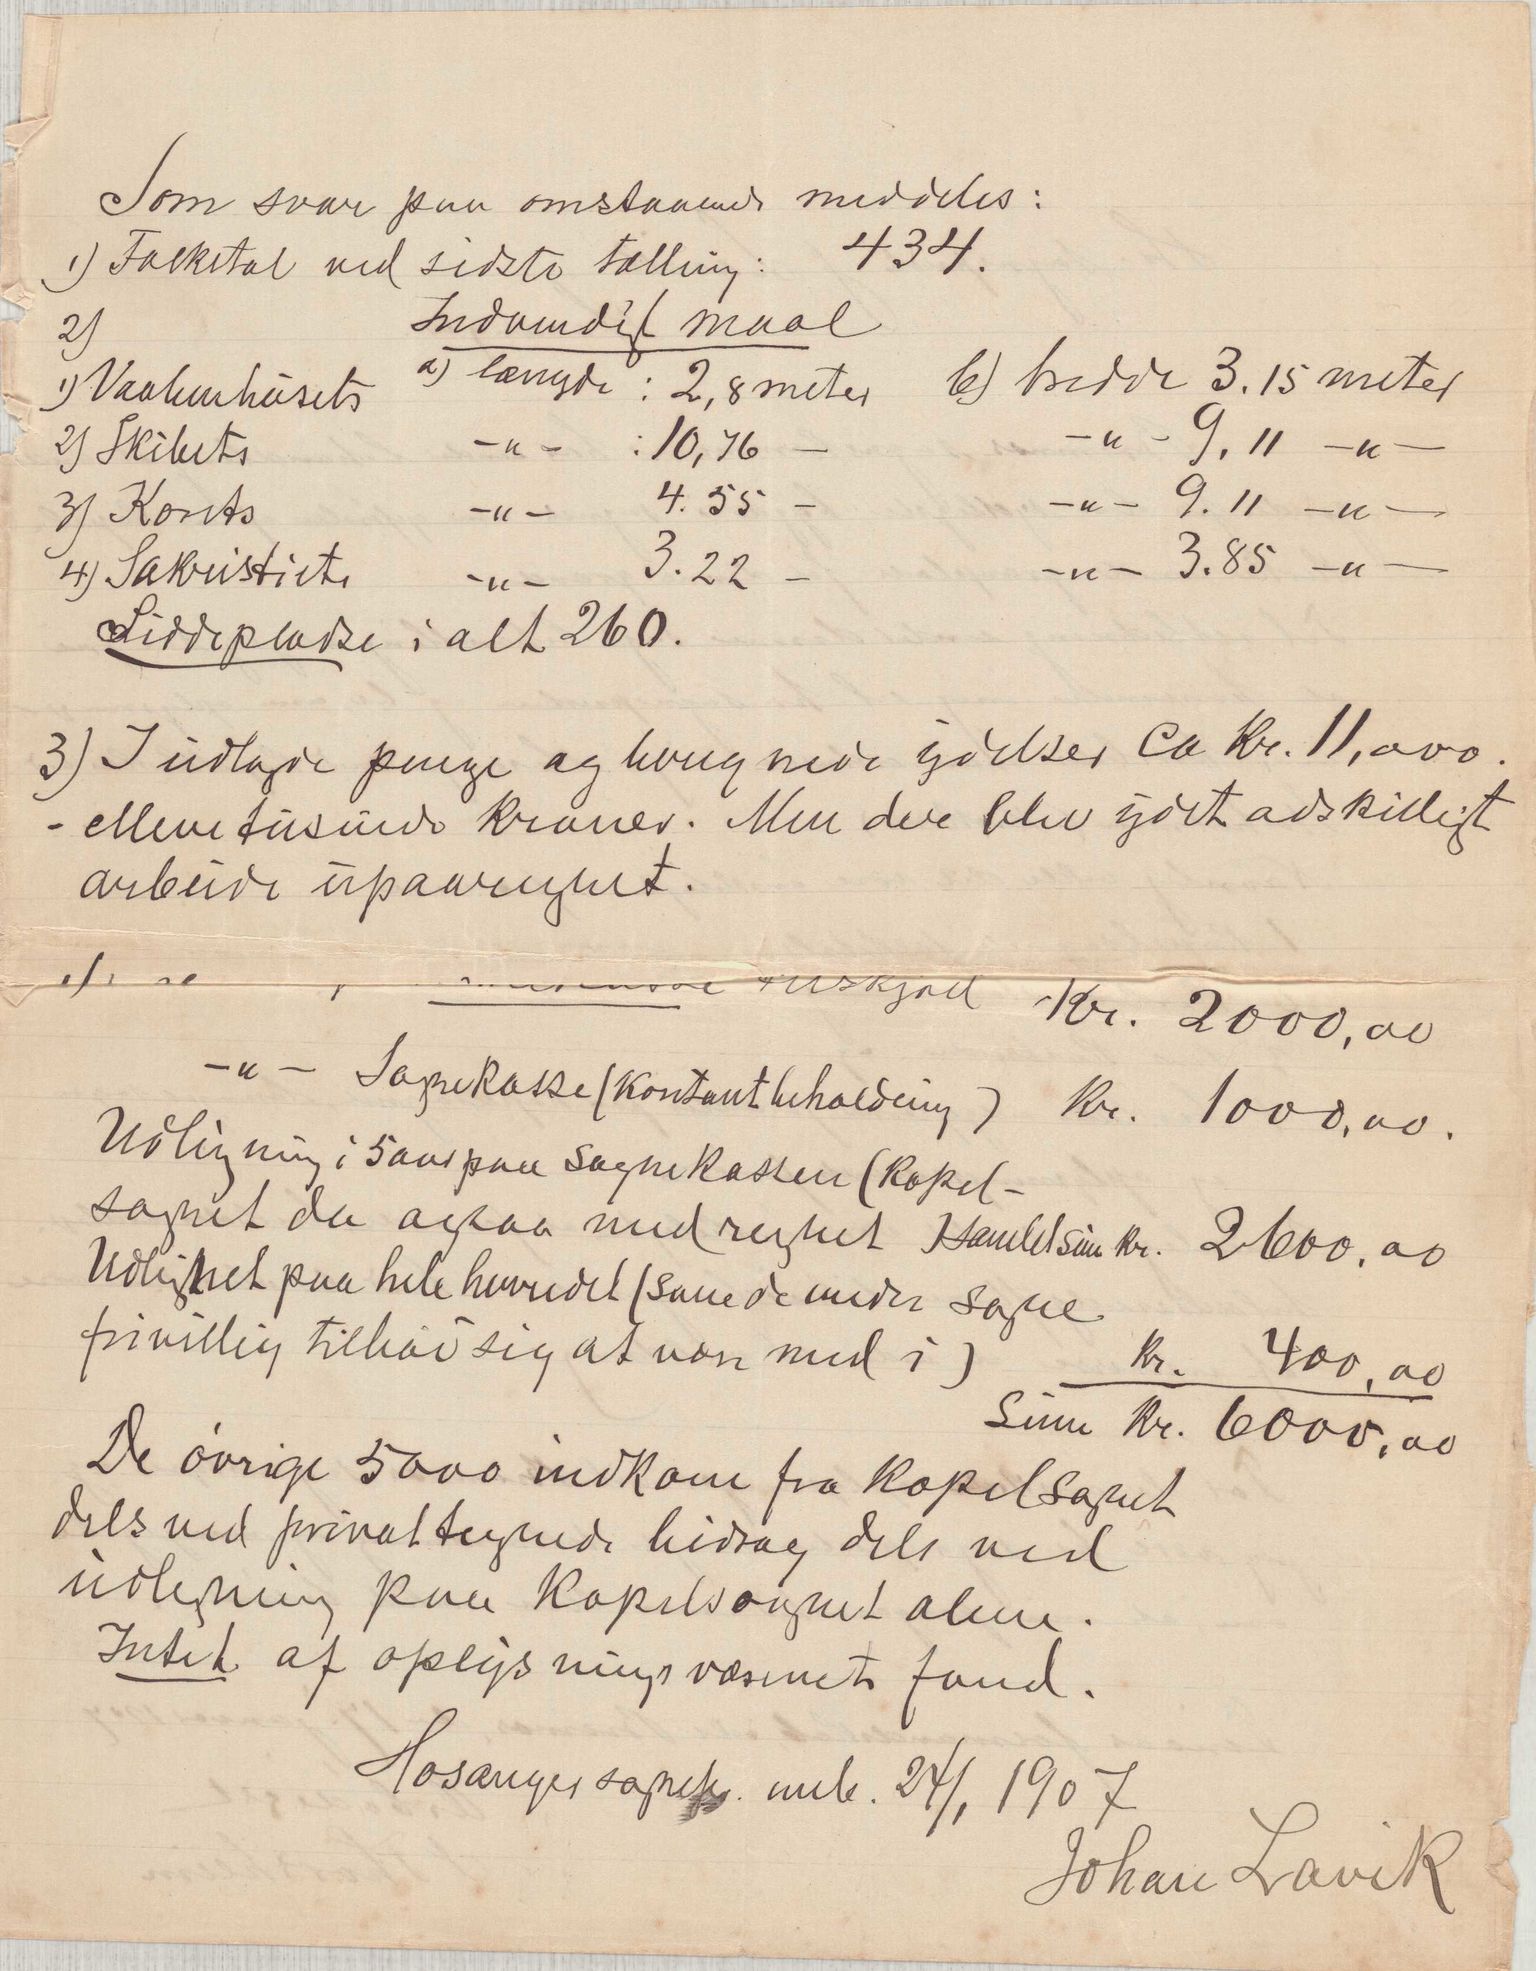 Som svar paa omstaaende meddeles:
1) Folketal ved sidste tælling: 434.
2) Indvendigt maal
1) Vaabenhusets a) længde : 2,8 meter b) bredde 3.15 meter
2) Skibets -"- : 10,76 - -"- 9.11 -"-
3) Korets -"- 4.55 - -"- 9.11 -"-
4) Sakristiets -"- 3.22 - -"- 3.85 -"-
Siddepladse i alt 260.
3) I udlagde penge og beregnede ydelser Ca Kr. 11,000.
- elleve tusinde Kroner. Men der blev gjort adskilligt
arbeide upaaregnet.
tilskjød Kr. 2000,00
-"- Sognekasse (Kontantbeholdning) Kr. 1000,00.
Udligning i 5 aar paa Sognekassen (Kapel-
sognet da ogsaa medregnet) samlet sum Kr. 2600,00
Udlignet paa hele herredet (som de andre sogne
frivillig tilbød sig at være med i) Kr. 400,00
Sum Kr. 6000,00
De øvrige 5000 indkom fra Kapelsognet
dels ved privat tegnede bidrag dels ved
udligning paa Kapelsognet alene.
Intet af oplysningsvæsenets fond.
Hosanger sognepr. emb. 24/1 1907
Johan Lavik